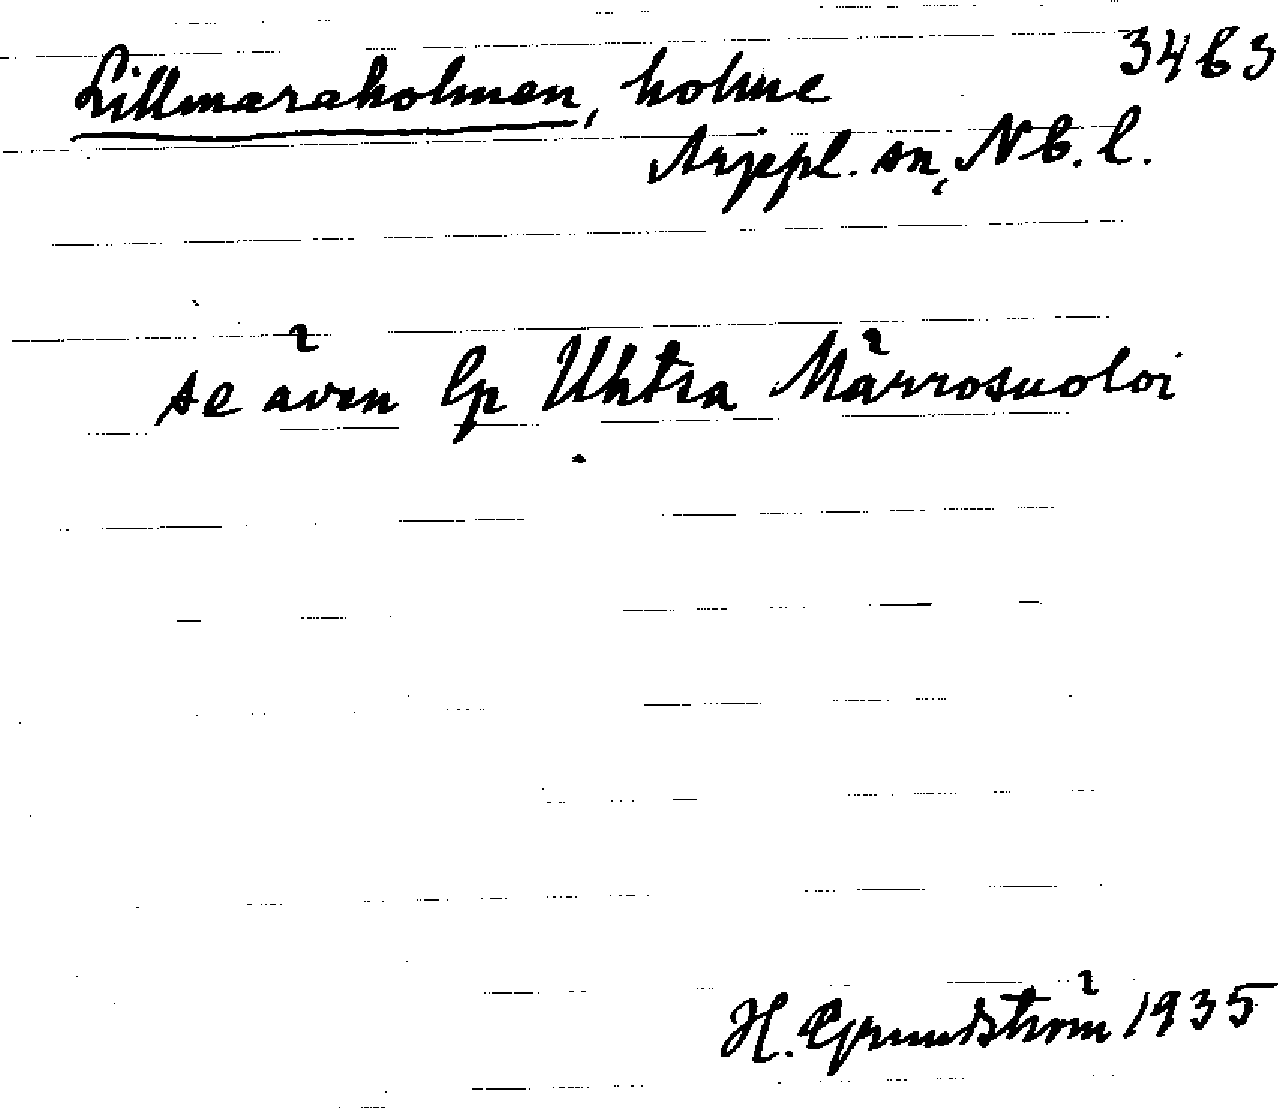 Lillmaraholmen, holme 3463
Arjepl. sn, Nb. l.
se även lp Uhtsa Märrosuoloi
H. Grundström 1935